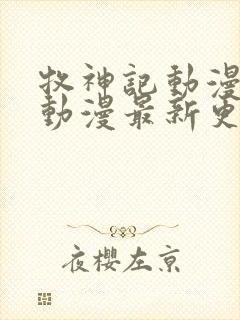 牧神記動漫
動漫最新更
夜櫻左京